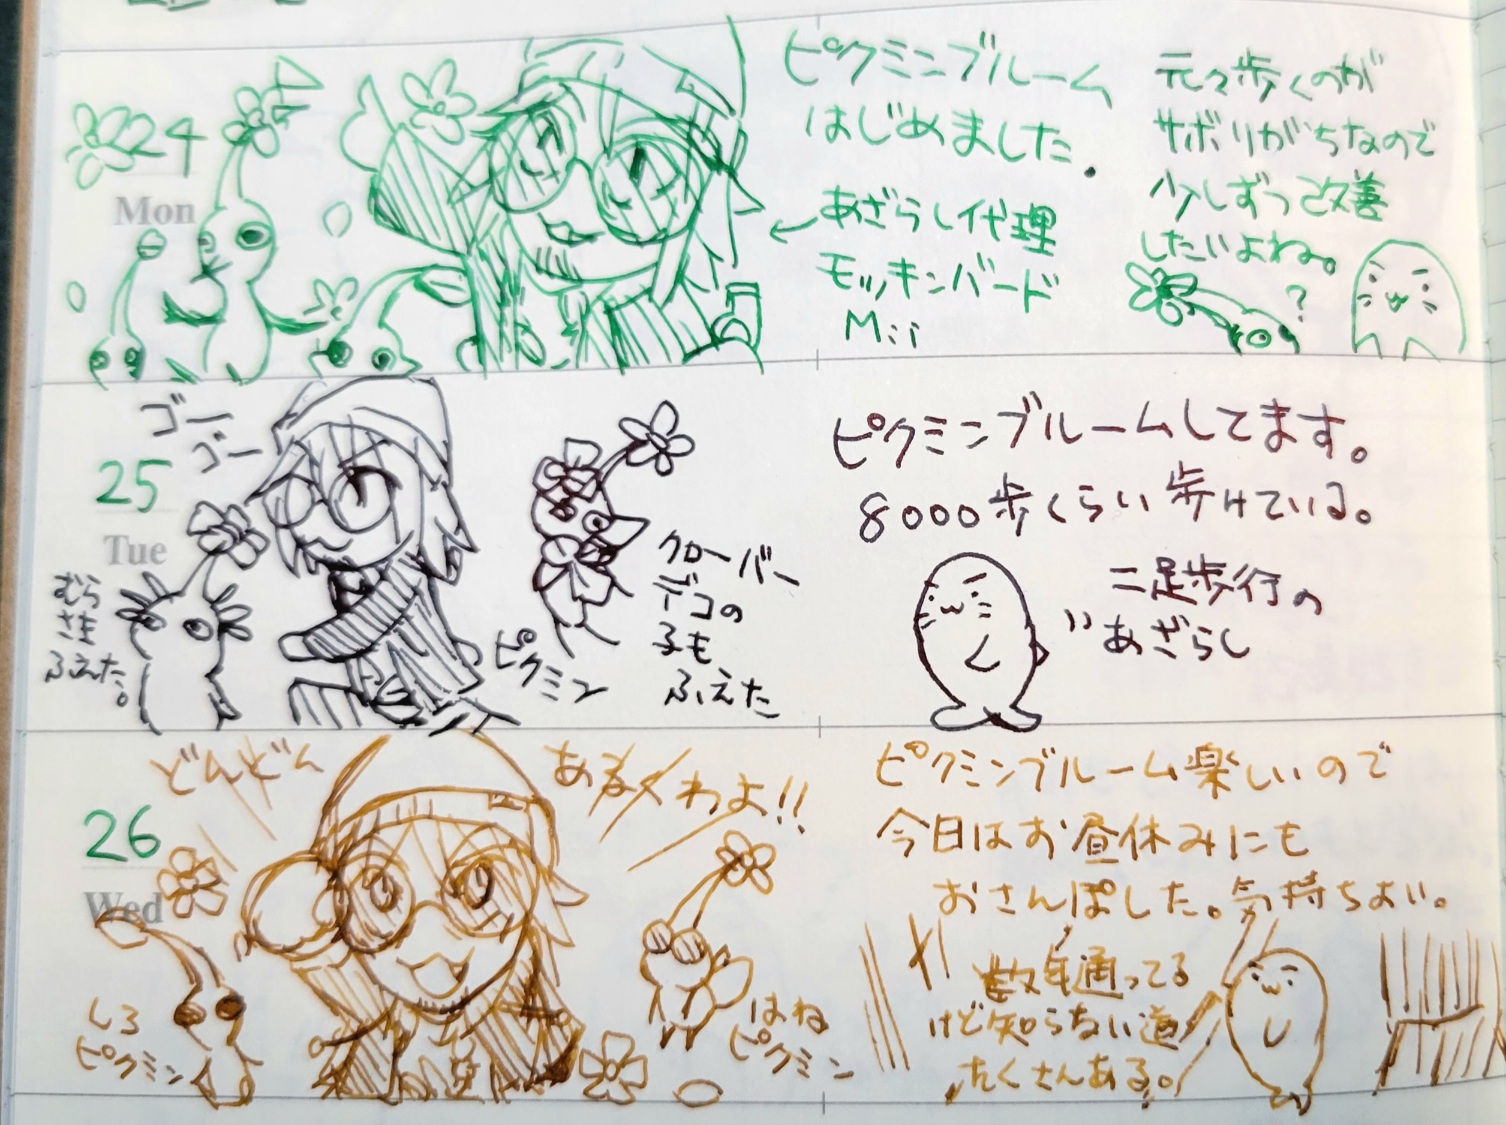 24
Mon
ピクミンブルーム
はじめました.
←あざらし代理
モッキンバード
Mii
元々歩くのが
サボりがちなので
少しずつ改善
したいよね。
?
25
Tue
ゴー
ゴー
むら
さき
ふえた。
ピクミン
クローバー
デコの
子も
ふえた
ピクミンブルームしてます。
8000歩くらい歩けている。
二足歩行の
あざらし
26
Wed
どんどん
あるくわよ!!
しろ
ピクミン
はね
ピクミン
ピクミンブルーム楽しいので
今日はお昼休みにも
おさんぽした。気持ちよい。
数年通ってる
けど知らない道
たくさんある。